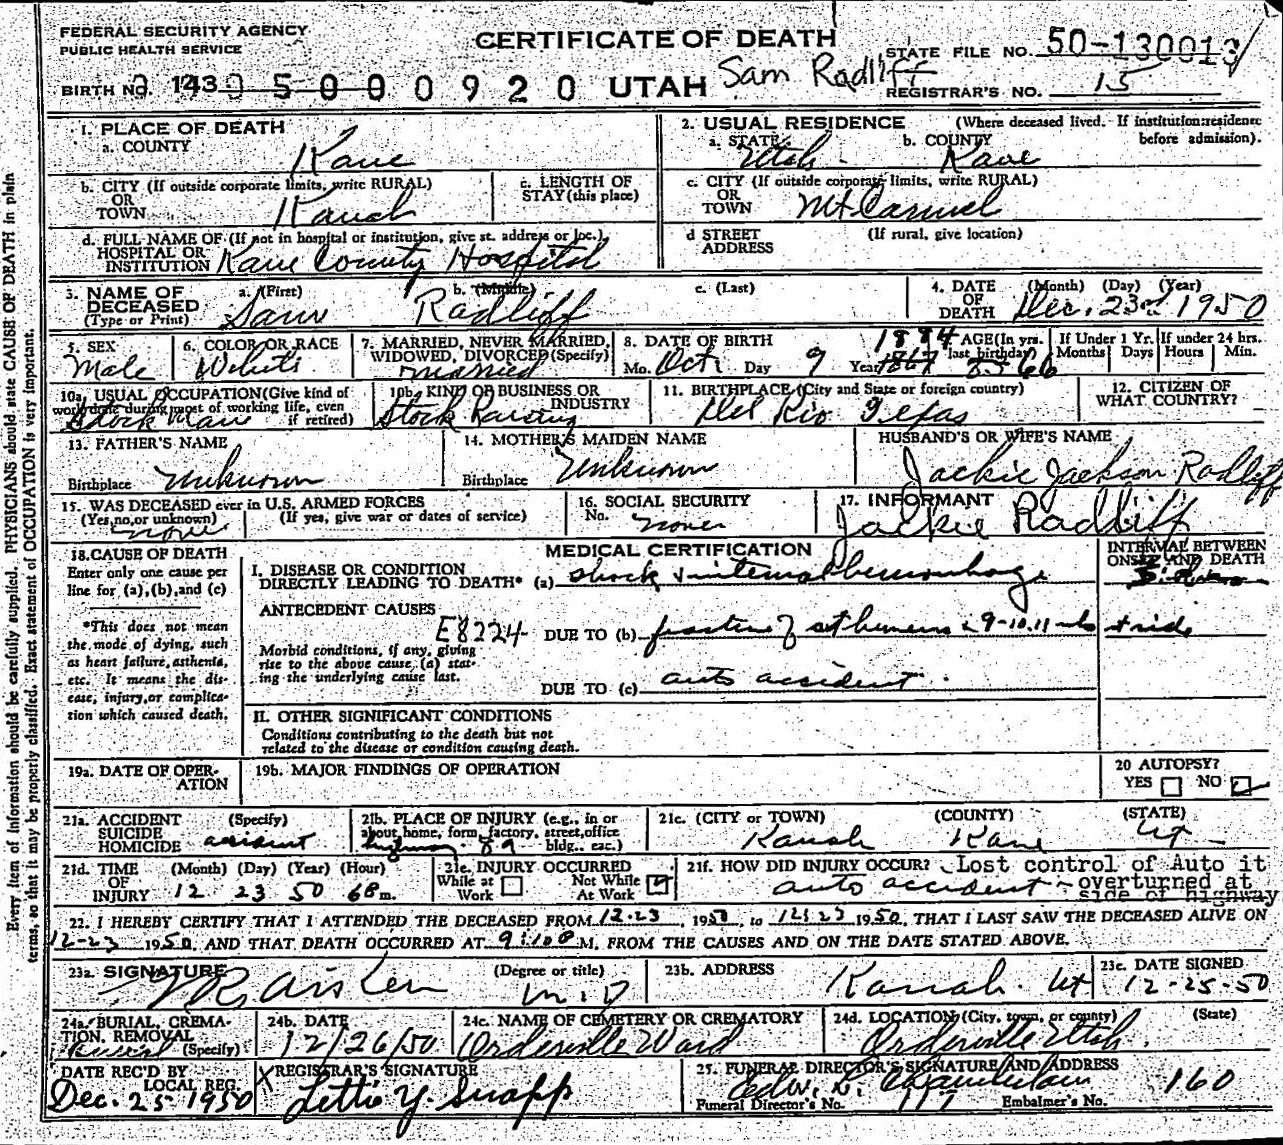 FEDERAL SECURITY AGENCY
PUBLIC HEALTH SERVICE
CERTIFICATE OF DEATH
STATE FILE NO. 50-130013
BIRTH NO. 143 0 5 0 0 0 9 2 0 UTAH Sam Radliff
REGISTRAR'S NO. 15
1. PLACE OF DEATH
a. COUNTY Kane
2. USUAL RESIDENCE (Where deceased lived. If institution: residence before admission).
a. STATE Utah b. COUNTY Kane
b. CITY (If outside corporate limits, write RURAL)
OR
TOWN Kanab
c. LENGTH OF
STAY (this place)
c. CITY (If outside corporate limits, write RURAL)
OR
TOWN Mt Carmel
d. FULL NAME OF (If not in hospital or institution, give st. address or loc.)
HOSPITAL OR
INSTITUTION Kane County Hospital
d STREET
ADDRESS
(If rural, give location)
3. NAME OF
DECEASED
(Type or Print)
a. (First) b. (Middle) c. (Last)
Sam Radliff
4. DATE
OF
DEATH
(Month) (Day) (Year)
Dec. 23rd 1950
5. SEX
Male
6. COLOR OR RACE
White
7. MARRIED, NEVER MARRIED,
WIDOWED, DIVORCED (Specify)
Married
8. DATE OF BIRTH 1884
Mo. Oct Day 9 Year 1867
AGE (In yrs.
last birthday)
66
If Under 1 Yr.
Months Days
If under 24 hrs.
Hours Min.
10a. USUAL OCCUPATION (Give kind of
work done during most of working life, even
if retired)
Stock Man
10b. KIND OF BUSINESS OR
INDUSTRY
Stock Raising
11. BIRTHPLACE (City and State or foreign country)
Del Rio Texas
12. CITIZEN OF
WHAT COUNTRY?
13. FATHER'S NAME
Birthplace Unknown
14. MOTHER'S MAIDEN NAME
Birthplace Unknown
HUSBAND'S OR WIFE'S NAME
Jackie Jackson Radliff
15. WAS DECEASED ever in U.S. ARMED FORCES
(Yes, no, or unknown) (If yes, give war or dates of service)
none
16. SOCIAL SECURITY
No. none
17. INFORMANT
Jackie Radliff
18. CAUSE OF DEATH
Enter only one cause per
line for (a), (b), and (c)
*This does not mean
the mode of dying, such
as heart failure, asthenia,
etc. It means the dis-
ease, injury, or complica-
tion which caused death.
MEDICAL CERTIFICATION
INTERVAL BETWEEN
ONSET AND DEATH
I. DISEASE OR CONDITION
DIRECTLY LEADING TO DEATH* (a) shock & internal hemorrhage
ANTECEDENT CAUSES
E8224
Morbid conditions, if any, giving
rise to the above cause (a) stat-
ing the underlying cause last.
DUE TO (b) fracture of 9-10-11
DUE TO (c) auto accident.
II. OTHER SIGNIFICANT CONDITIONS
Conditions contributing to the death but not
related to the disease or condition causing death.
19a. DATE OF OPER-
ATION
19b. MAJOR FINDINGS OF OPERATION
20 AUTOPSY?
YES NO
21a. ACCIDENT
SUICIDE
HOMICIDE
(Specify)
accident
21b. PLACE OF INJURY (e.g., in or
about home, form, factory, street, office
bldg., eac.)
highway 89
21c. (CITY or TOWN) (COUNTY) (STATE)
Kanab Kane Ut
21d. TIME
OF
INJURY
(Month) (Day) (Year) (Hour)
12 23 50 6 8 m.
21e. INJURY OCCURRED
While at
Work
Not While
At Work
21f. HOW DID INJURY OCCUR? Lost control of Auto it
auto accident - overturned at
side of highway
22. I HEREBY CERTIFY THAT I ATTENDED THE DECEASED FROM 12-23, 1950, to 12-23 1950, THAT I LAST SAW THE DECEASED ALIVE ON
12-23 1950, AND THAT DEATH OCCURRED AT 9:10 P M, FROM THE CAUSES AND ON THE DATE STATED ABOVE.
23a. SIGNATURE (Degree or title)
Aiken M.D
23b. ADDRESS
Kanab. Ut
23c. DATE SIGNED
12-25-50
24a. BURIAL, CREMA-
TION, REMOVAL
(Specify)
Burial
24b. DATE
12/26/50
24c. NAME OF CEMETERY OR CREMATORY
Orderville Ward
24d. LOCATION (City, town, or county) (State)
Orderville Utah.
DATE REC'D BY
LOCAL REG.
Dec. 25 1950
REGISTRAR'S SIGNATURE
Lettie Y. Snapp
25. FUNERAL DIRECTOR'S SIGNATURE AND ADDRESS
Chamberlain
Funeral Director's No. 117 Embalmer's No. 160
Every item of information should be carefully supplied. PHYSICIANS should state CAUSE OF DEATH in plain
terms, so that it may be properly classified. Exact statement of OCCUPATION is very important.